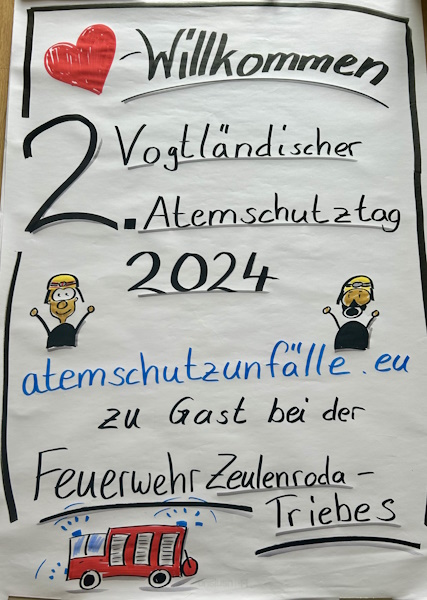 -Willkommen
2. Vogtländischer
Atemschutztag
2024
atemschutzunfälle.eu
zu Gast bei der
Feuerwehr Zeulenroda-
Triebes